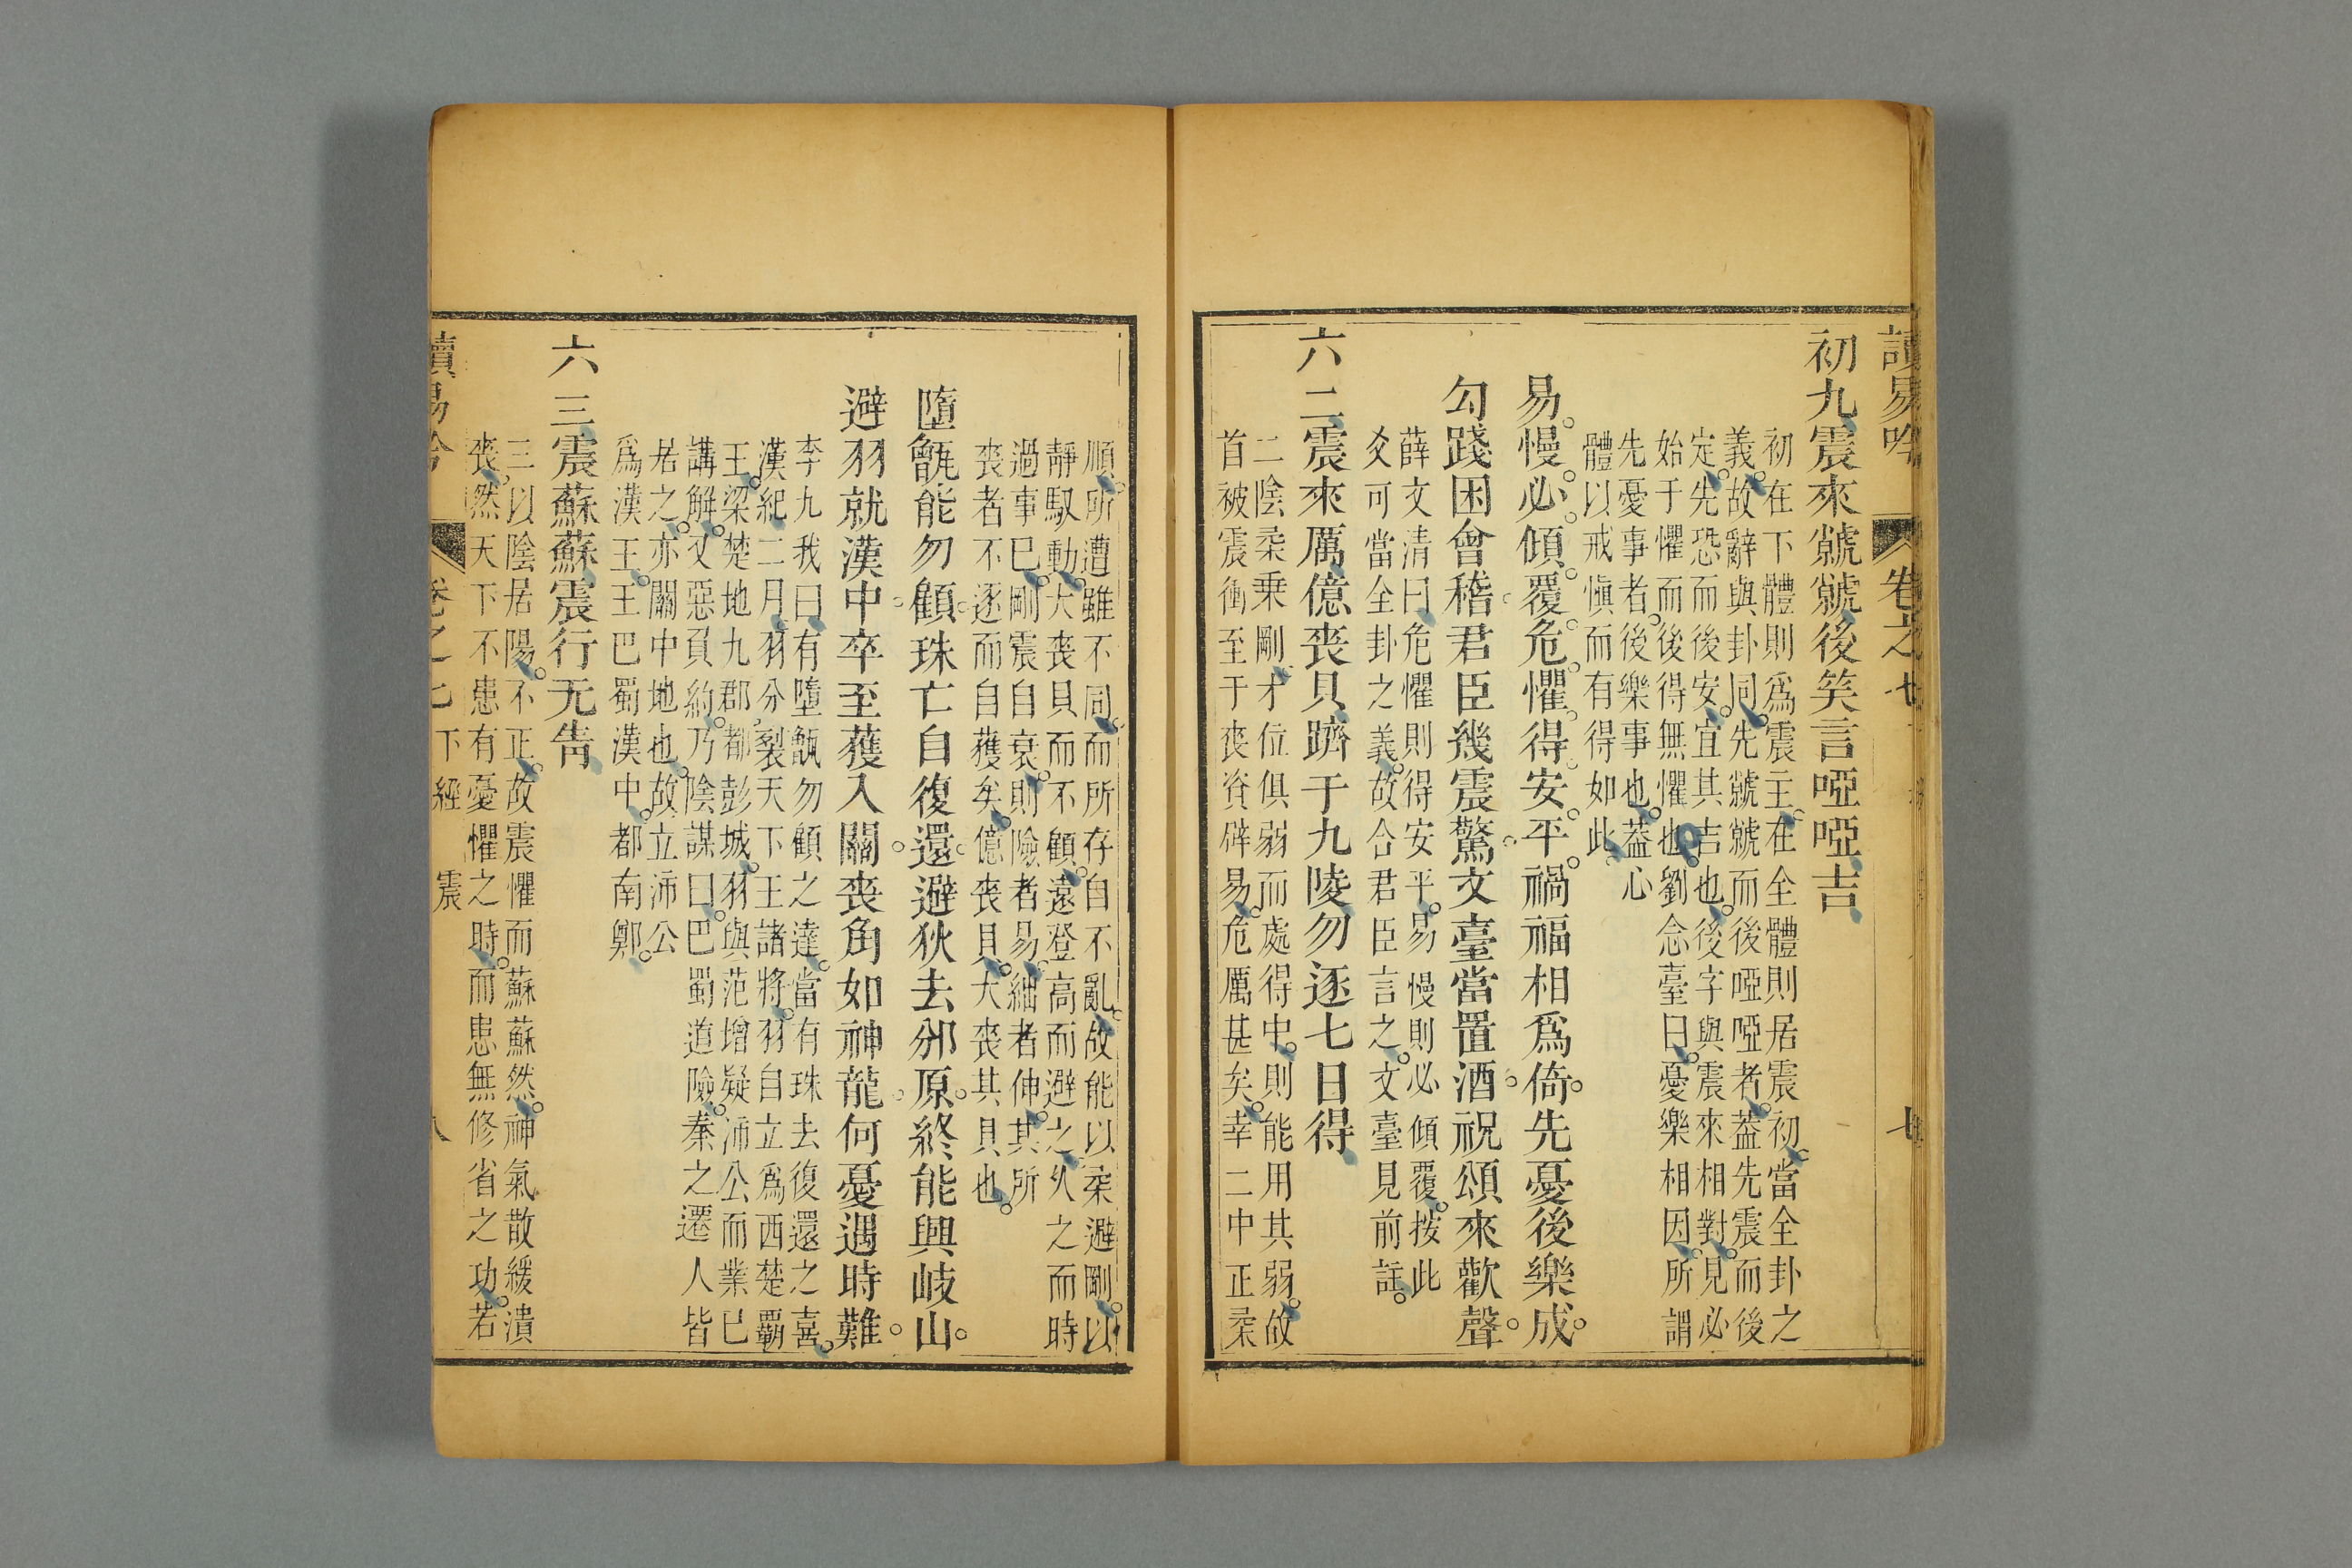 讀易吟 卷之七 七
初九震來虩虩後笑言啞啞吉
初在下體則爲震主在全體則居震初當全卦之
義故辭與卦同先虩虩而後啞啞者葢先震而後
定先恐而後安宜其吉也後字與震來相對見必
始于懼而後得無懼也劉念臺曰憂樂相因所謂
先憂事者後樂事也葢心
體以戒愼而有得如此
易慢必傾覆危懼得安平禍福相爲倚先憂後樂成
勾踐困會稽君臣幾震驚文臺當置酒祝頌來歡聲
薛文清曰危懼則得安平易慢則必傾覆按此
爻可當全卦之義故合君臣言之文臺見前註
六二震來厲億喪貝躋于九陵勿逐七日得
二陰柔乗剛才位俱弱而處得中則能用其弱故
首被震衝至于喪資辟易危厲甚矣幸二中正柔
順所遭雖不同而所存自不亂故能以柔避剛以
靜馭動大喪貝而不顧遠登高而避之乆之而時
過事已剛震自衰則險者易絀者伸其所
喪者不逐而自獲矣億喪貝大喪其貝也
墮甑能勿顧珠亡自復還避狄去邠原終能興岐山
避羽就漢中卒至蓷入關喪角如神龍何憂遇時難
李九我曰有墮甑勿顧之達當有珠去復還之喜
漢紀二月羽分裂天下王諸將羽自立爲西楚覇
王梁楚地九郡都彭城羽與范增疑沛公而業已
講解又惡頁約乃陰謀曰巴蜀道險秦之遷人皆
居之亦關中地也故立沛公
爲漢王王巴蜀漢中都南鄭
六三震蘇蘇震行无眚
三以陰居陽不正故震懼而蘇蘇然神氣散緩潰
喪然天下不患有憂懼之時而患無修省之功若
讀易吟 卷之七 下經 震 八